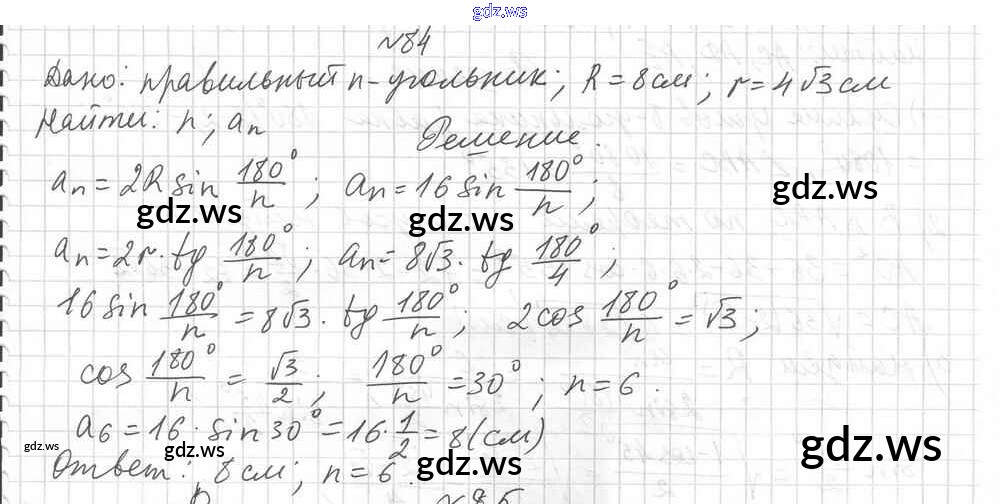 gdz.ws
№84
Дано: правильный n-угольник; R = 8 см; r = 4√3 см
Найти: n; aₙ
Решение.
aₙ = 2R sin 180°/n; aₙ = 16 sin 180°/n;
gdz.ws gdz.ws gdz.ws
aₙ = 2r · tg 180°/n; aₙ = 8√3 · tg 180°/4;
16 sin 180°/n = 8√3 · tg 180°/n; 2cos 180°/n = √3;
cos 180°/n = √3/2; 180°/n = 30°; n = 6.
a₆ = 16 · sin 30° = 16 · 1/2 = 8 (см)
gdz.ws gdz.ws gdz.ws gdz.ws
Ответ: 8 см; n = 6.
№85